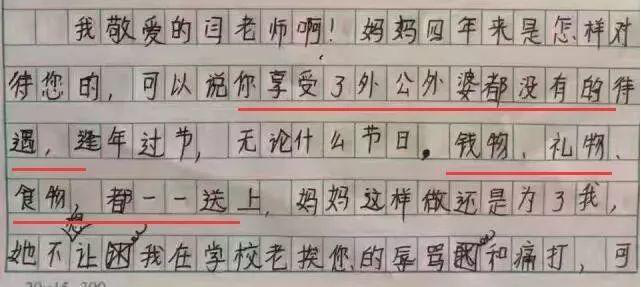 我敬爱的闫老师啊！妈妈四年来是怎样对
待您的，可以说你享受了外公外婆都没有的待
遇，逢年过节，无论什么节日。钱物、礼物、
食物，都一一送上，妈妈这样做还是为了我，
她不让我在学校老挨您的辱骂和痛打，可